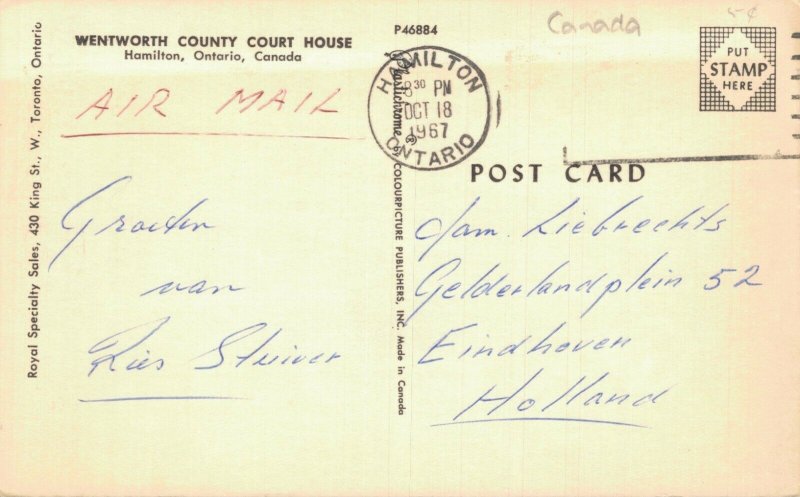 WENTWORTH COUNTY COURT HOUSE
Hamilton, Ontario, Canada
AIR MAIL
Groeten
van
Ries Stuiver
Royal Specialty Sales, 430 King St., W., Toronto, Ontario
P46884
Canada
5¢
HAMILTON
8³⁰ PM
OCT 18
1967
ONTARIO
PUT
STAMP
HERE
Plastichrome ® by COLOURPICTURE PUBLISHERS, INC. Made in Canada
POST CARD
fam. Liebrechts
Gelderlandplein 52
Eindhoven
Holland